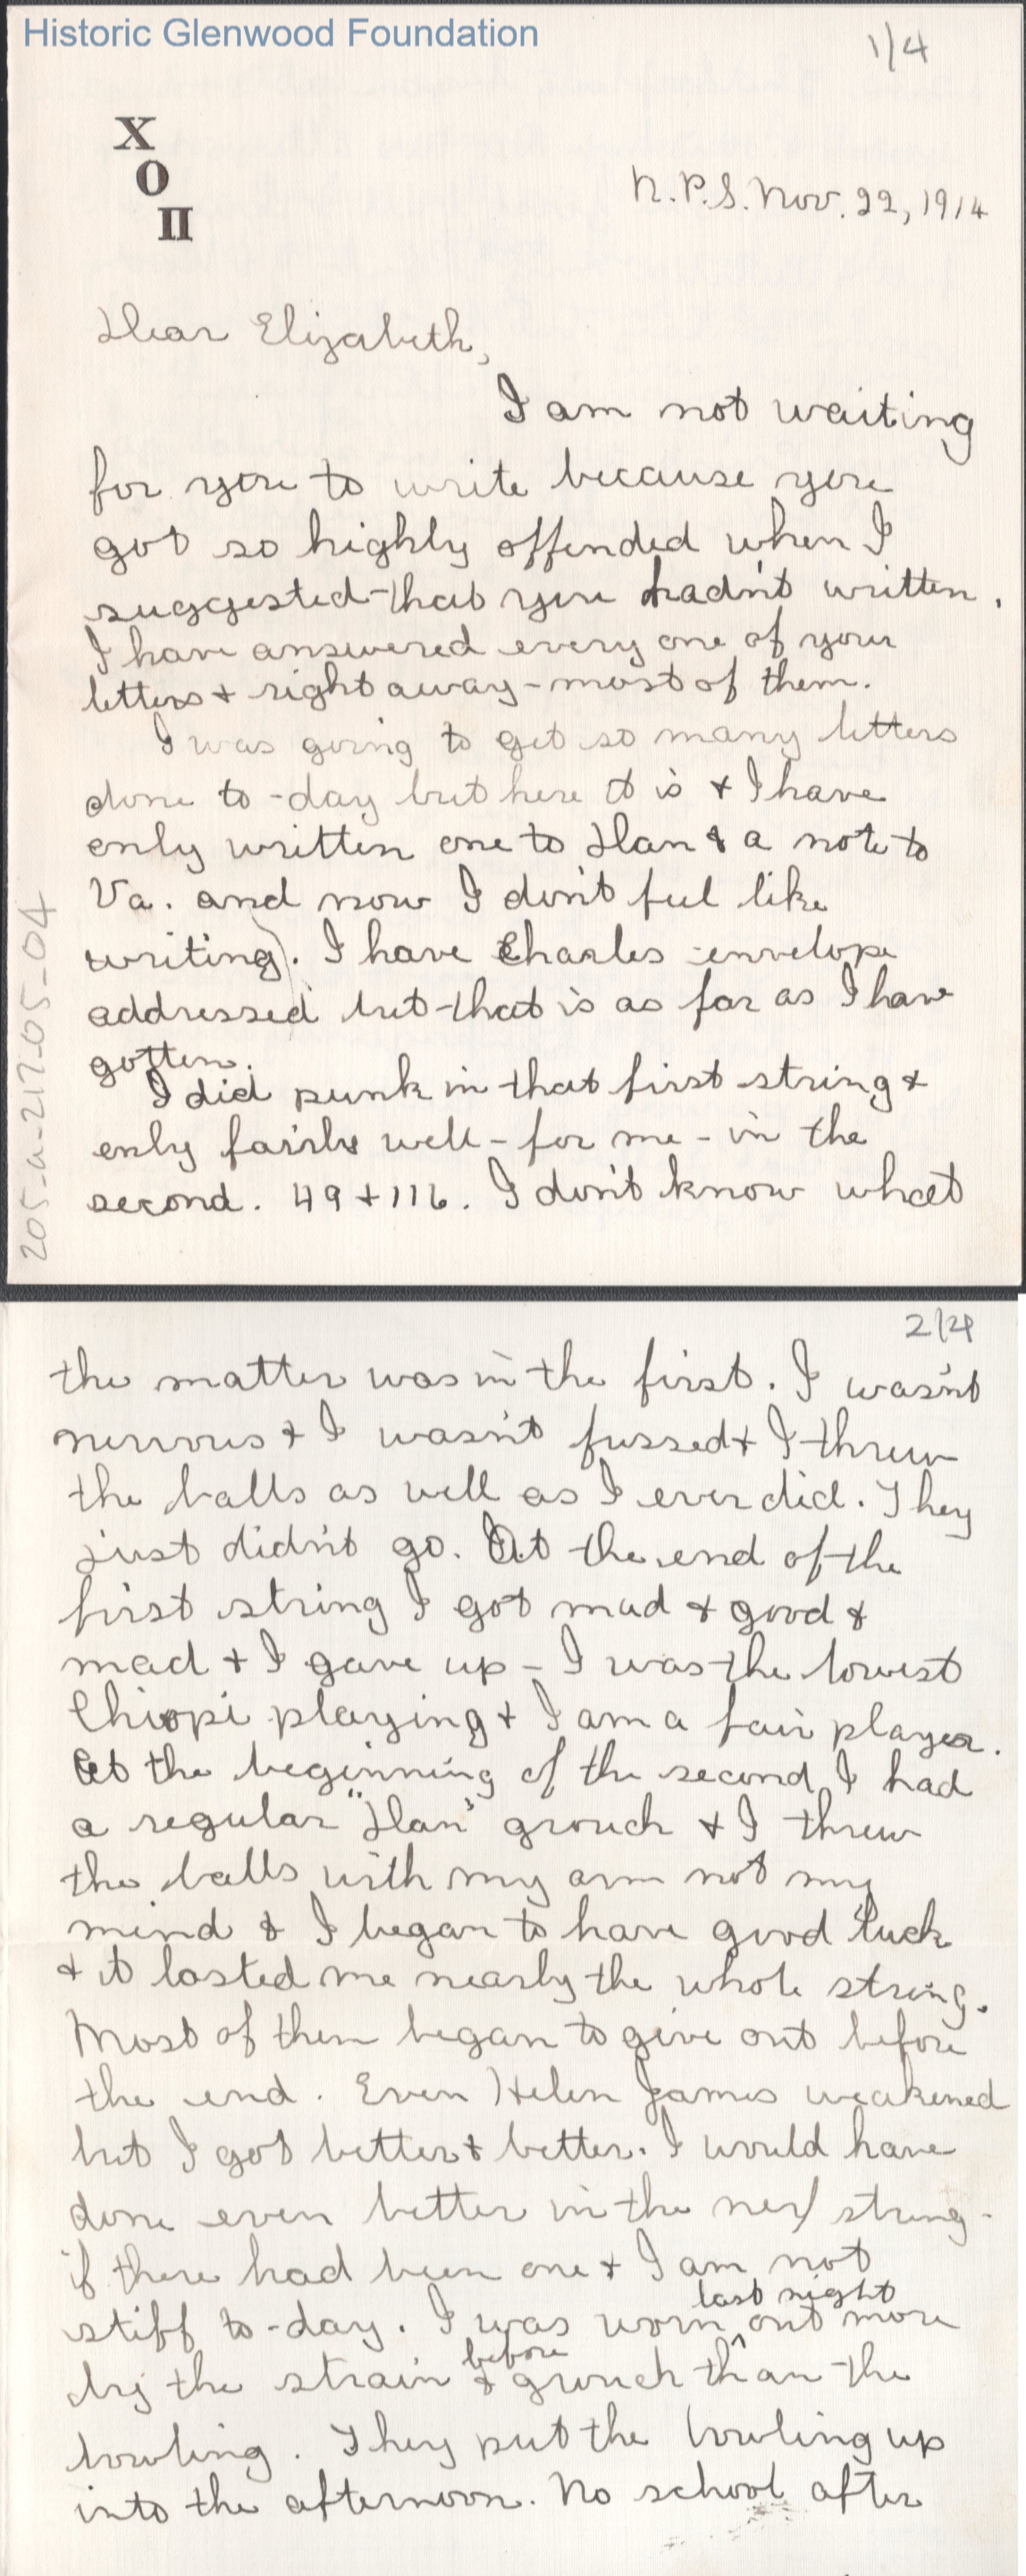 Historic Glenwood Foundation
1/4
X
O
II
N.P.S. Nov. 22, 1914
Dear Elizabeth,
I am not waiting
for you to write because you
got so highly offended when I
suggested that you hadn't written.
I have answered every one of your
letters & right away - most of them.
I was going to get so many letters
done to-day but here it is & I have
only written one to Dan & a note to
Va. and now I don't feel like
writing). I have Charles envelope
addressed but that is as far as I have
gotten.
I did punk in that first string &
only fairly well - for me - in the
second. 49 + 116. I don't know what
205-a-217-05-04
2/4
the matter was in the first. I wasn't
nervous & I wasn't fussed & I threw
the balls as well as I ever did. They
just didn't go. At the end of the
first string I got mad & good &
mad & I gave up - I was the lowest
Chiopi playing & I am a fair player.
At the beginning of the second I had
a regular "Dan" grouch & I threw
the balls with my arm not my
mind & I began to have good luck
& it lasted me nearly the whole string.
Most of them began to give out before
the end. Even Helen James weakened
but I got better & better. I would have
done even better in the next string -
if there had been one & I am not
stiff to-day. I was worn out last night more
by the strain before & grouch than the
bowling. They put the bowling up
into the afternoon. No school after